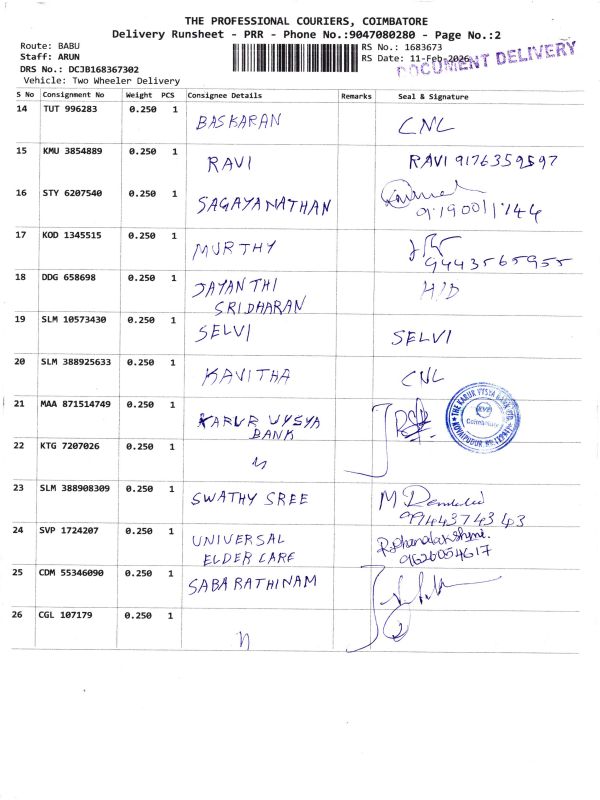 THE PROFESSIONAL COURIERS, COIMBATORE
Delivery Runsheet - PRR - Phone No.:9047080280 - Page No.:2
Route: BABU
RS No.: 1683673
Staff: ARUN
RS Date: 11-Feb-2026
DOCUMENT DELIVERY
DRS No.: DCJB168367302
Vehicle: Two Wheeler Delivery
S No Consignment No Weight PCS Consignee Details Remarks Seal & Signature
14 TUT 996283 0.250 1 BASKARAN CNL
15 KMU 3854889 0.250 1 RAVI RAVI 9176359597
16 STY 6207540 0.250 1 SAGAYANATHAN
17 KOD 1345515 0.250 1 MURTHY 9443565955
18 DDG 658698 0.250 1 JAYANTHI H/D
SRIDHARAN
19 SLM 10573430 0.250 1 SELVI SELVI
20 SLM 388925633 0.250 1 KAVITHA CNL
21 MAA 871514749 0.250 1 KARUR VYSYA
BANK
THE KARUR VYSYA BANK LTD.
KVB
Coimbatore
22 KTG 7207026 0.250 1 "
23 SLM 388908309 0.250 1 SWATHY SREE M
9944374343
24 SVP 1724207 0.250 1 UNIVERSAL R. Dhanalakshmi.
ELDER CARE 9626054617
25 CDM 55346090 0.250 1 SABARATHINAM
26 CGL 107179 0.250 1 "